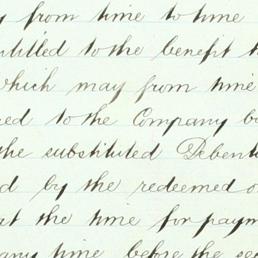 y from time to time
ntitled to the benefit t
which may from time
ed to the Company b
the substituted Debent
d by the redeemed o
at the time for paym
any time before the se